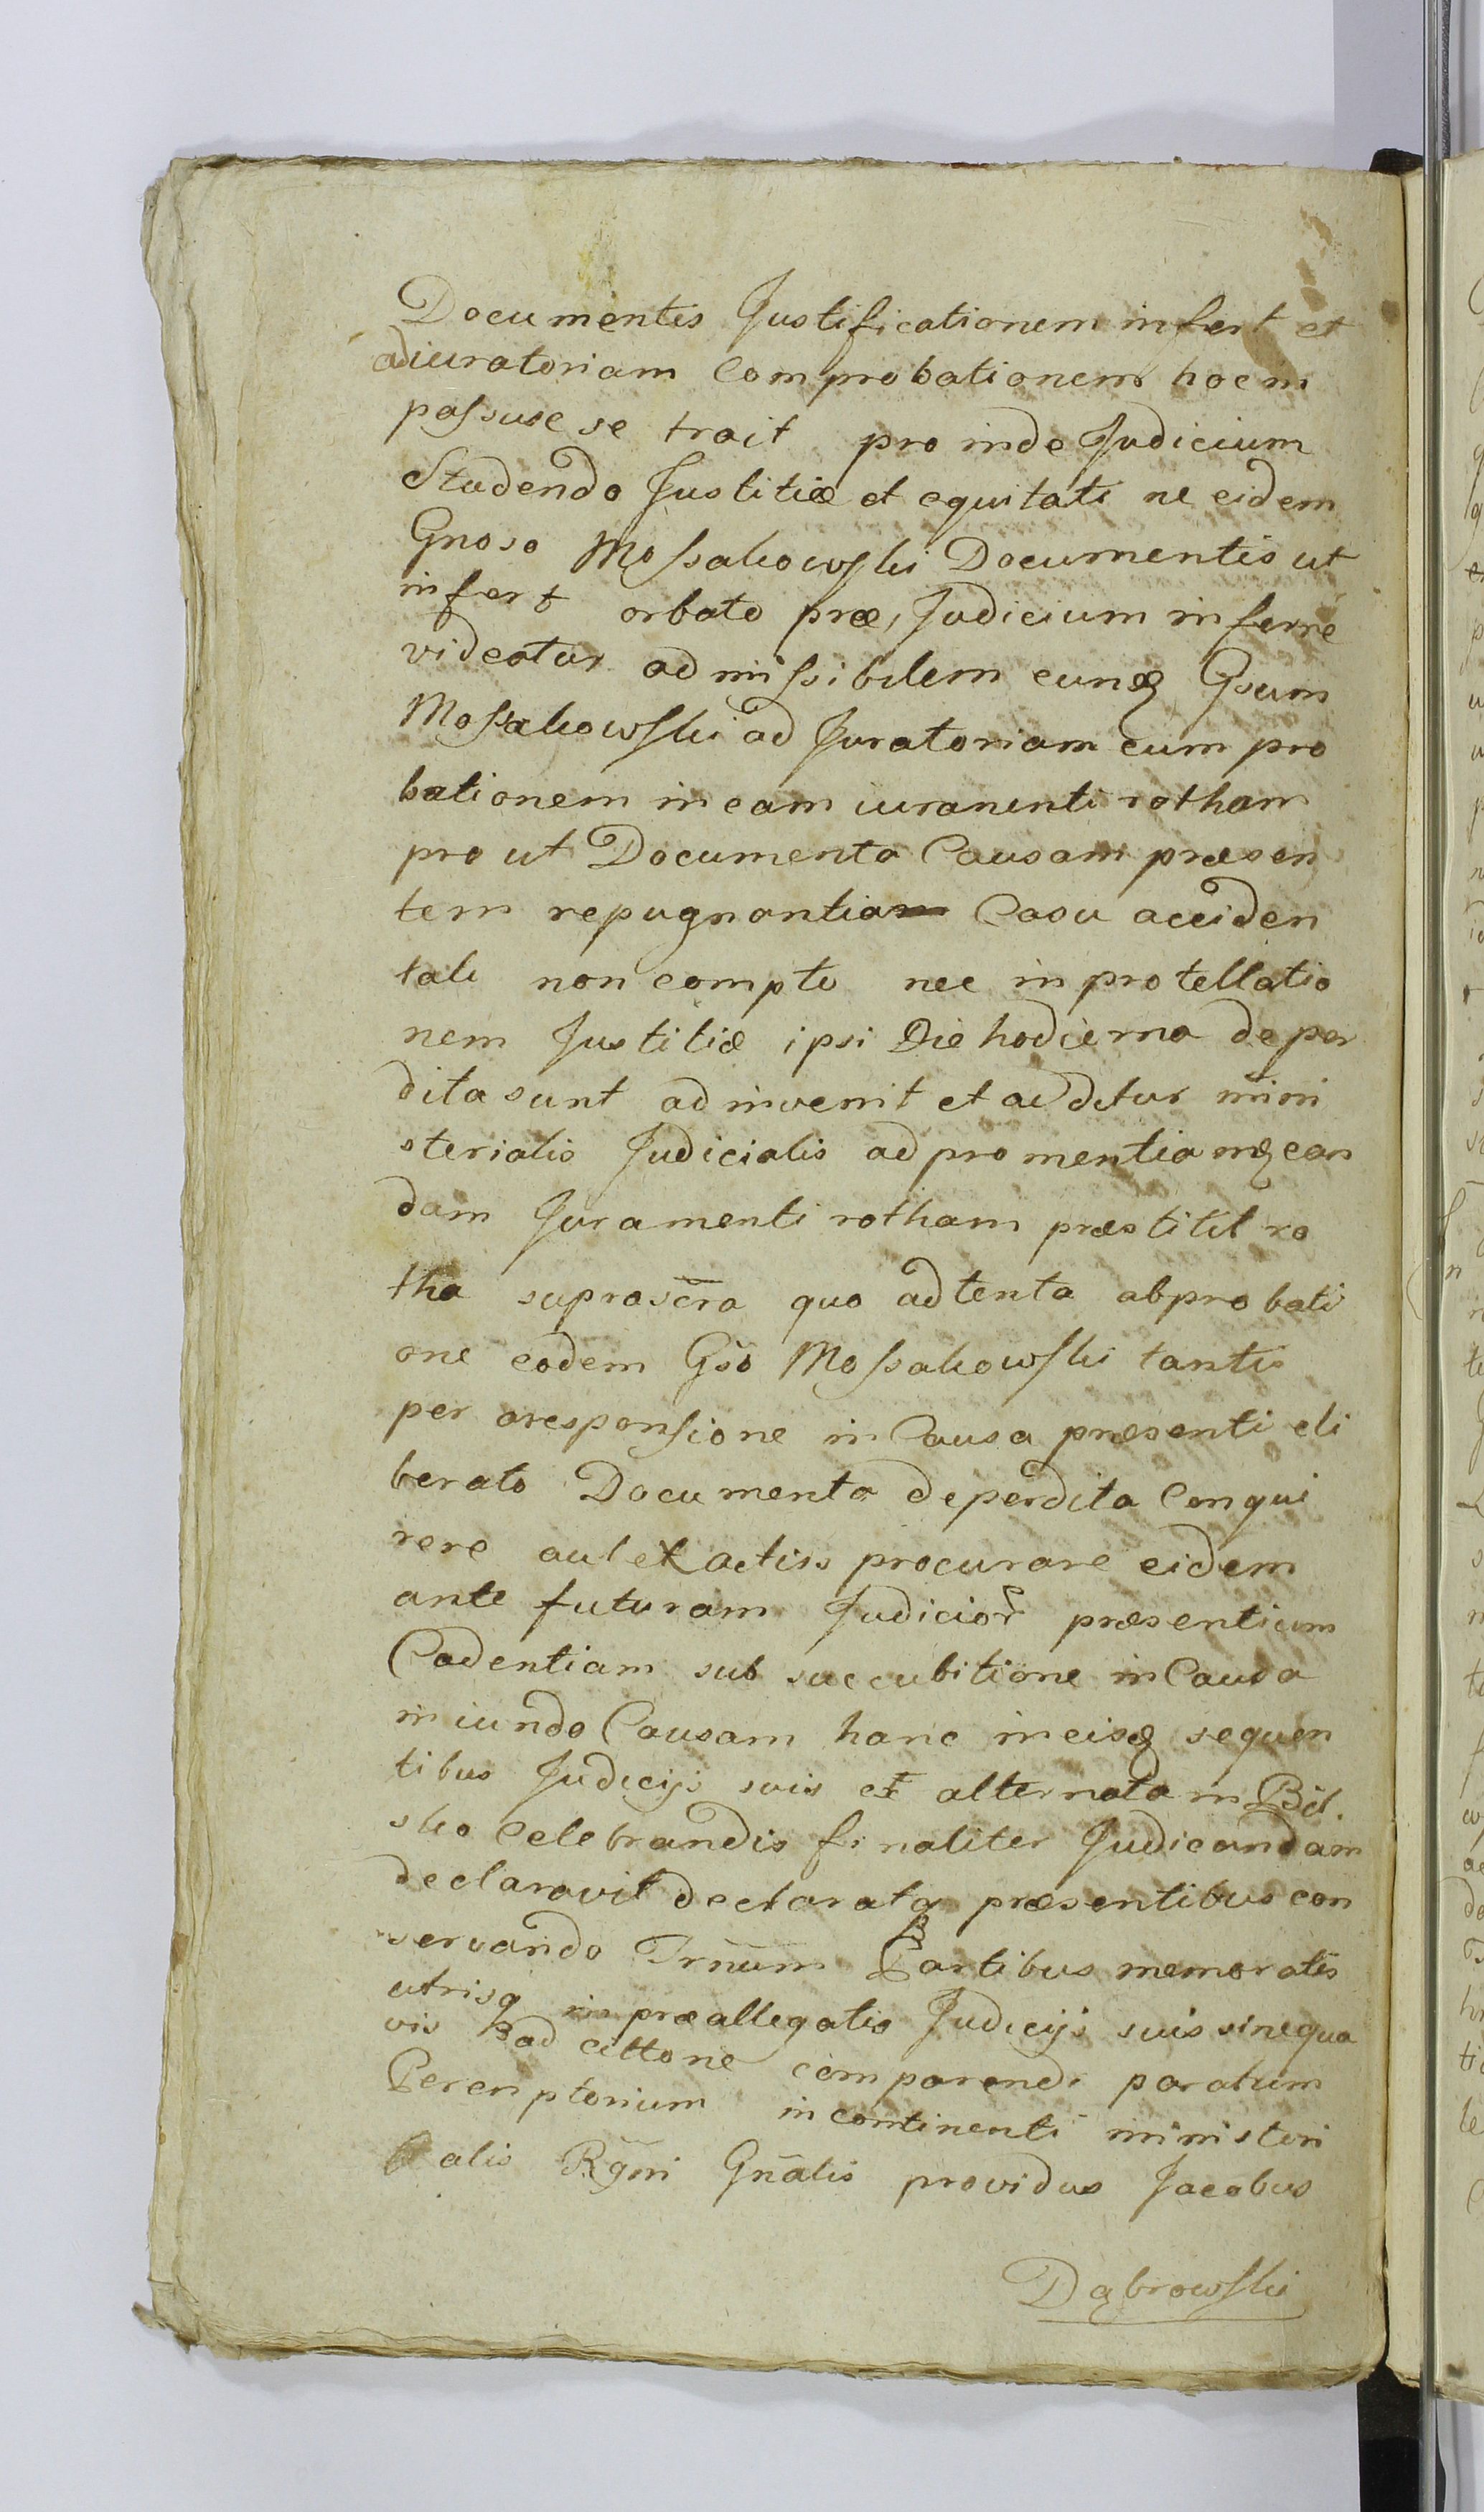 Documentis Justificationem infert et
adiuratoriam Comprobationem hoc in
passu se trait pro inde Judicium
Studendo Justitiæ et equitati ne eidem
Gnoso Mossakowski Documentis ut
infert orbato præ, Judicium inferre
videatur admissibilem eunq Gsum
Mossakowski ad Juratoriam cum pro
bationem in eam iuranenti rotham
pro ut Documenta Causam præsen
tem repugnantia Casu acciden
tali non compto nec in protellatio
nem Justitiæ ipsi Die hodierna deper
dita sunt ad invenit et additur mini
sterialis Judicialis ad promentiamq ean
dam Juramenti rotham præstitit ro
tha suprascra quo adtenta abprobati
one eodem Gso Mossakowski tantis
per aresponsione in Causa præsenti eli
berato Documenta deperdita Conqui
rere aut ex actiss procurare eidem
ante futuram Judicior præsentium
Cadentiam sub succubitione in Causa
iniundo Causam hanc in eisq sequen
tibus Judicijs suis ex alternata in Biel.
sko Celebrandis finaliter Judicandam
declaravit declaratq præsentibus con
servando Trnum Partibus memoratis
utrisq in præallegatis Judicijs suis sine qua
vis ad cittone comparendi paratum
Perenptorium in continenti ministeri
alis Rgni Gnalis providus Jacobus
Dąbrowski